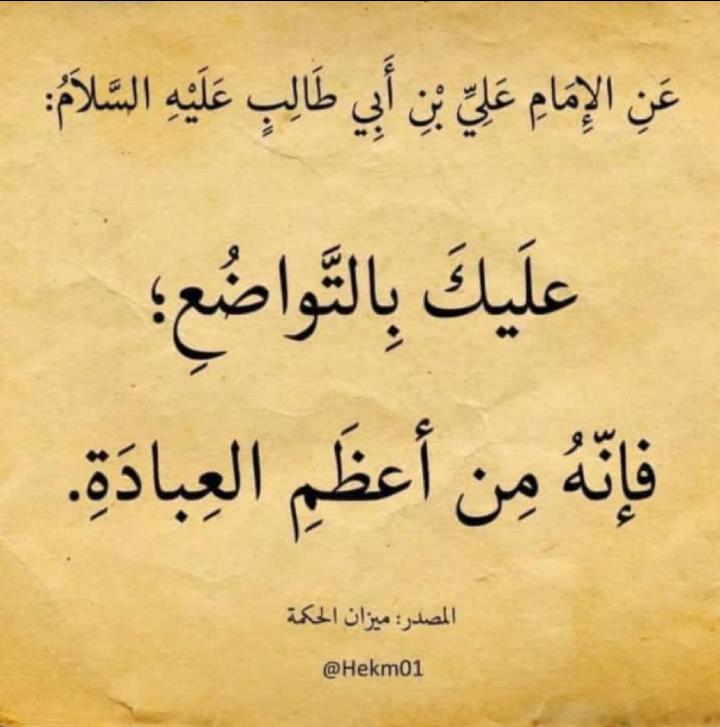 عَنِ الإِمَامِ عَلِيِّ بْنِ أَبِي طَالِبٍ عَلَيْهِ السَّلاَمُ:
علَيكَ بِالتَّواضُعِ؛
فإنّهُ مِن أعظَمِ العِبادَةِ.
المصدر: ميزان الحكمة
@Hekm01